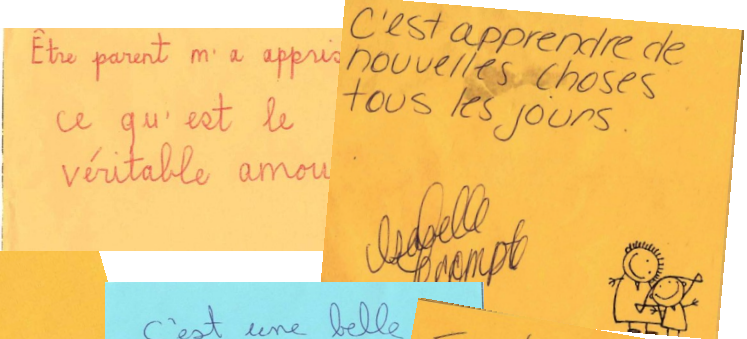 Être parent m'a appris
ce qu'est le
véritable amou
C'est apprendre de
nouvelles choses
tous les jours.
Isabelle
c'est une belle